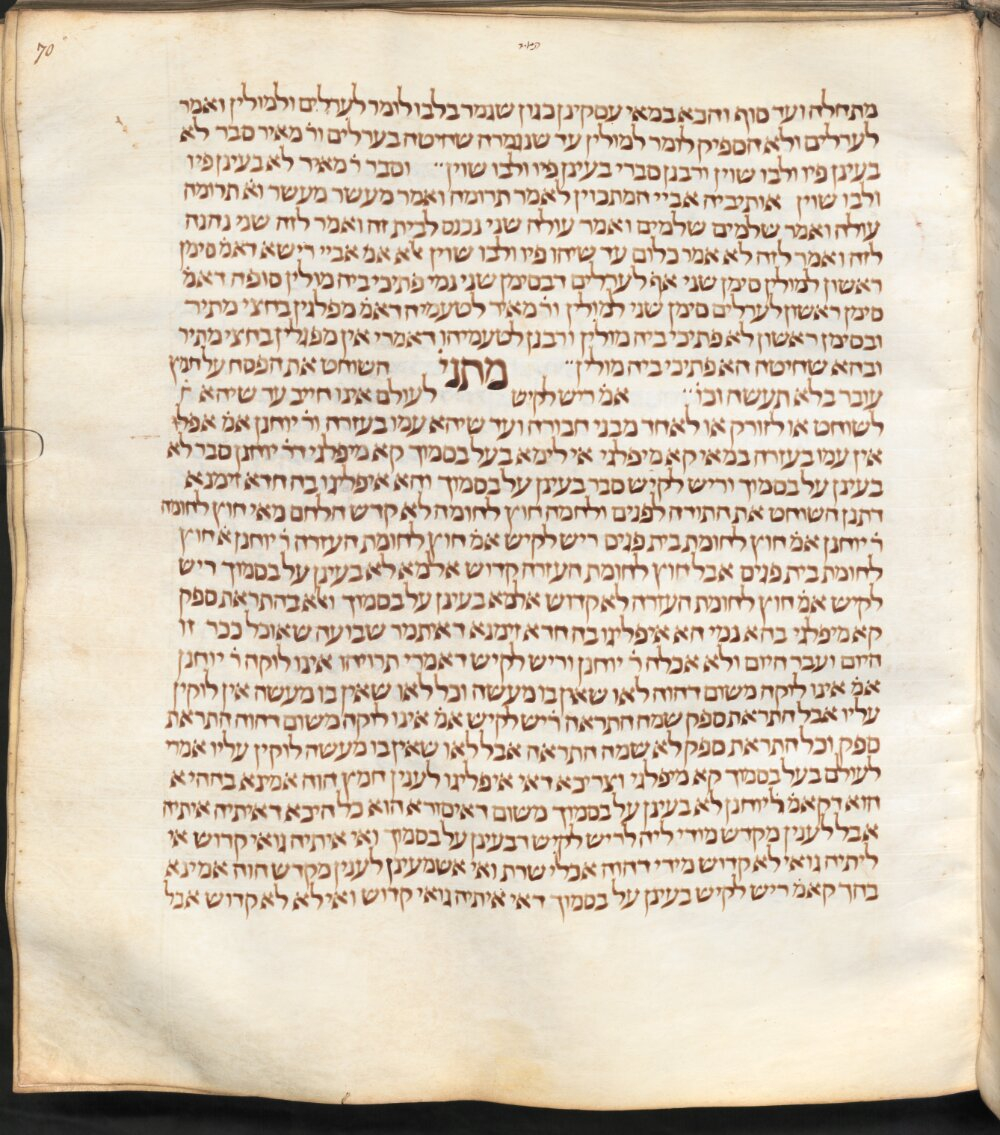 70
מתחלה ועד סוף והכא במאי עסקינן כגון שגמר בלבו לומר לערלים ולמולין ואמר
לערלים ולא הספיק לומר למולין עד שנגמרה שחיטה בערלים ור׳ מאיר סבר לא
בעינן פיו ולבו שוין ורבנן סברי בעינן פיו ולבו שוין׃ וסבר ר׳ מאיר לא בעינן פיו
ולבו שוין אותיביה אביי המתכוין לאמר תרומה ואמר מעשר מעשר וא׳ תרומה
עולה ואמר שלמים שלמים ואמר עולה שני נכנס לבית זה ואמר לזה שני נהנה
לזה ואמר לזה לא אמר כלום עד שיהו פיו ולבו שוין אלא אמ׳ אביי רישא דאמ׳ סימן
ראשון למולין סימן שני אף לערלים דבסימן שני נמי פתיכי ביה מולין סופה דאמ׳
סימן ראשון לערלים סימן שני למולין ור׳ מאיר לטעמיה דאמ׳ מפלגין בחצי מתיר
ובסימן ראשון לא פתיכי ביה מולין ורבנן לטעמיהו דאמרי אין מפגלין בחצי מתיר
ובהא שחיטה הא פתיכי ביה מולין׃ מתני׳ השוחט את הפסח על חמץ
עובר בלא תעשה וכו׳׃ אמ׳ ריש לקיש לעולם אינו חייב עד שיהא
לשוחט או לזורק או לאחד מבני חבורה ועד שיהא עמו בעזרה ור׳ יוחנן אמ׳ אפלו
אין עמו בעזרה במאי קא מיפלגי אי לימא בעל בסמוך קא מיפלגי דר׳ יוחנן סבר לא
בעינן על בסמוך וריש לקיש סבר בעינן על בסמוך והא איפליגו בה חדא זימנא
דתנן השוחט את התודה לפנים ולחמה חוץ לחומה לא קדש הלחם מאי חוץ לחומה
ר׳ יוחנן אמ׳ חוץ לחומת בית פגים ריש לקיש אמ׳ חוץ לחומת העזרה ר׳ יוחנן א׳ חוץ
לחומת בית פגים אבל חוץ לחומת העזרה קדוש אלמא לא בעינן על בסמוך ריש
לקיש אמ׳ חוץ לחומת העזרה לא קדוש אלמא בעינן על בסמוך אלא בהתראת ספק
קא מיפלגי בהא נמי הא איפליגו בה חדא זימנא דאיתמר שבועה שאוכל ככר זו
היום ועבר היום ולא אכלה ר׳ יוחנן וריש לקיש דאמרי תרויהו אינו לוקה ר׳ יוחנן
אמ׳ אינו לוקה משום דהוה לאו שאין בו מעשה וכל לאו שאין בו מעשה אין לוקין
עליו אבל התראת ספק שמה התראה ריש לקיש אמ׳ אינו לוקה משום דהוה התראת
ספק וכל התראת ספק לא שמה התראה אבל לאו שאין בו מעשה לוקין עליו אמרי
לעולם בעל בסמוך קא מיפלגי וצריכא דאי איפליגו לענין חמץ הוה אמינא בההיא
הוא דקאמ׳ ר׳ יוחנן לא בעינן על בסמוך משום דאיסורא הוא כל היכא דאיתיה איתיה
אבל לענין מקדש מודי ליה לריש לקיש דבעינן על בסמוך ואי איתיה גואי קדוש אי
ליתיה גואי לא קדוש מידי דהוה אכלי שרת ואי אשמעינן לענין מקדש הוה אמינא
בהך קאמ׳ ריש לקיש בעינן על בסמוך דאי איתיה גואי קדוש ואי לא לא קדוש אבל